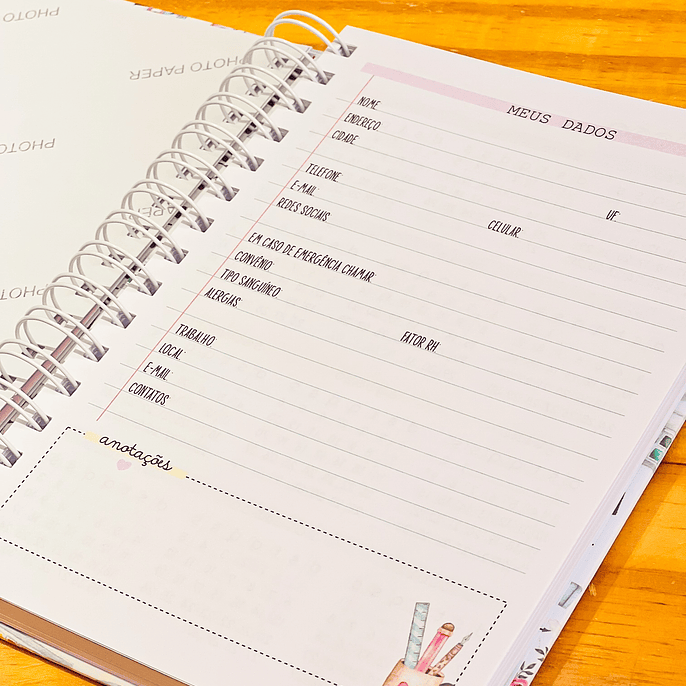 PHOTO
PHOTO PAPER
PHOTO
PAPER
PHOTO
MEUS DADOS
NOME
ENDEREÇO
CIDADE UF:
TELEFONE CELULAR
E-MAIL
REDES SOCIAIS
EM CASO DE EMERGÊNCIA CHAMAR
CONVÊNIO
TIPO SANGUÍNEO FATOR RH:
ALERGIAS:
TRABALHO
LOCAL:
E-MAIL
CONTATOS:
anotações